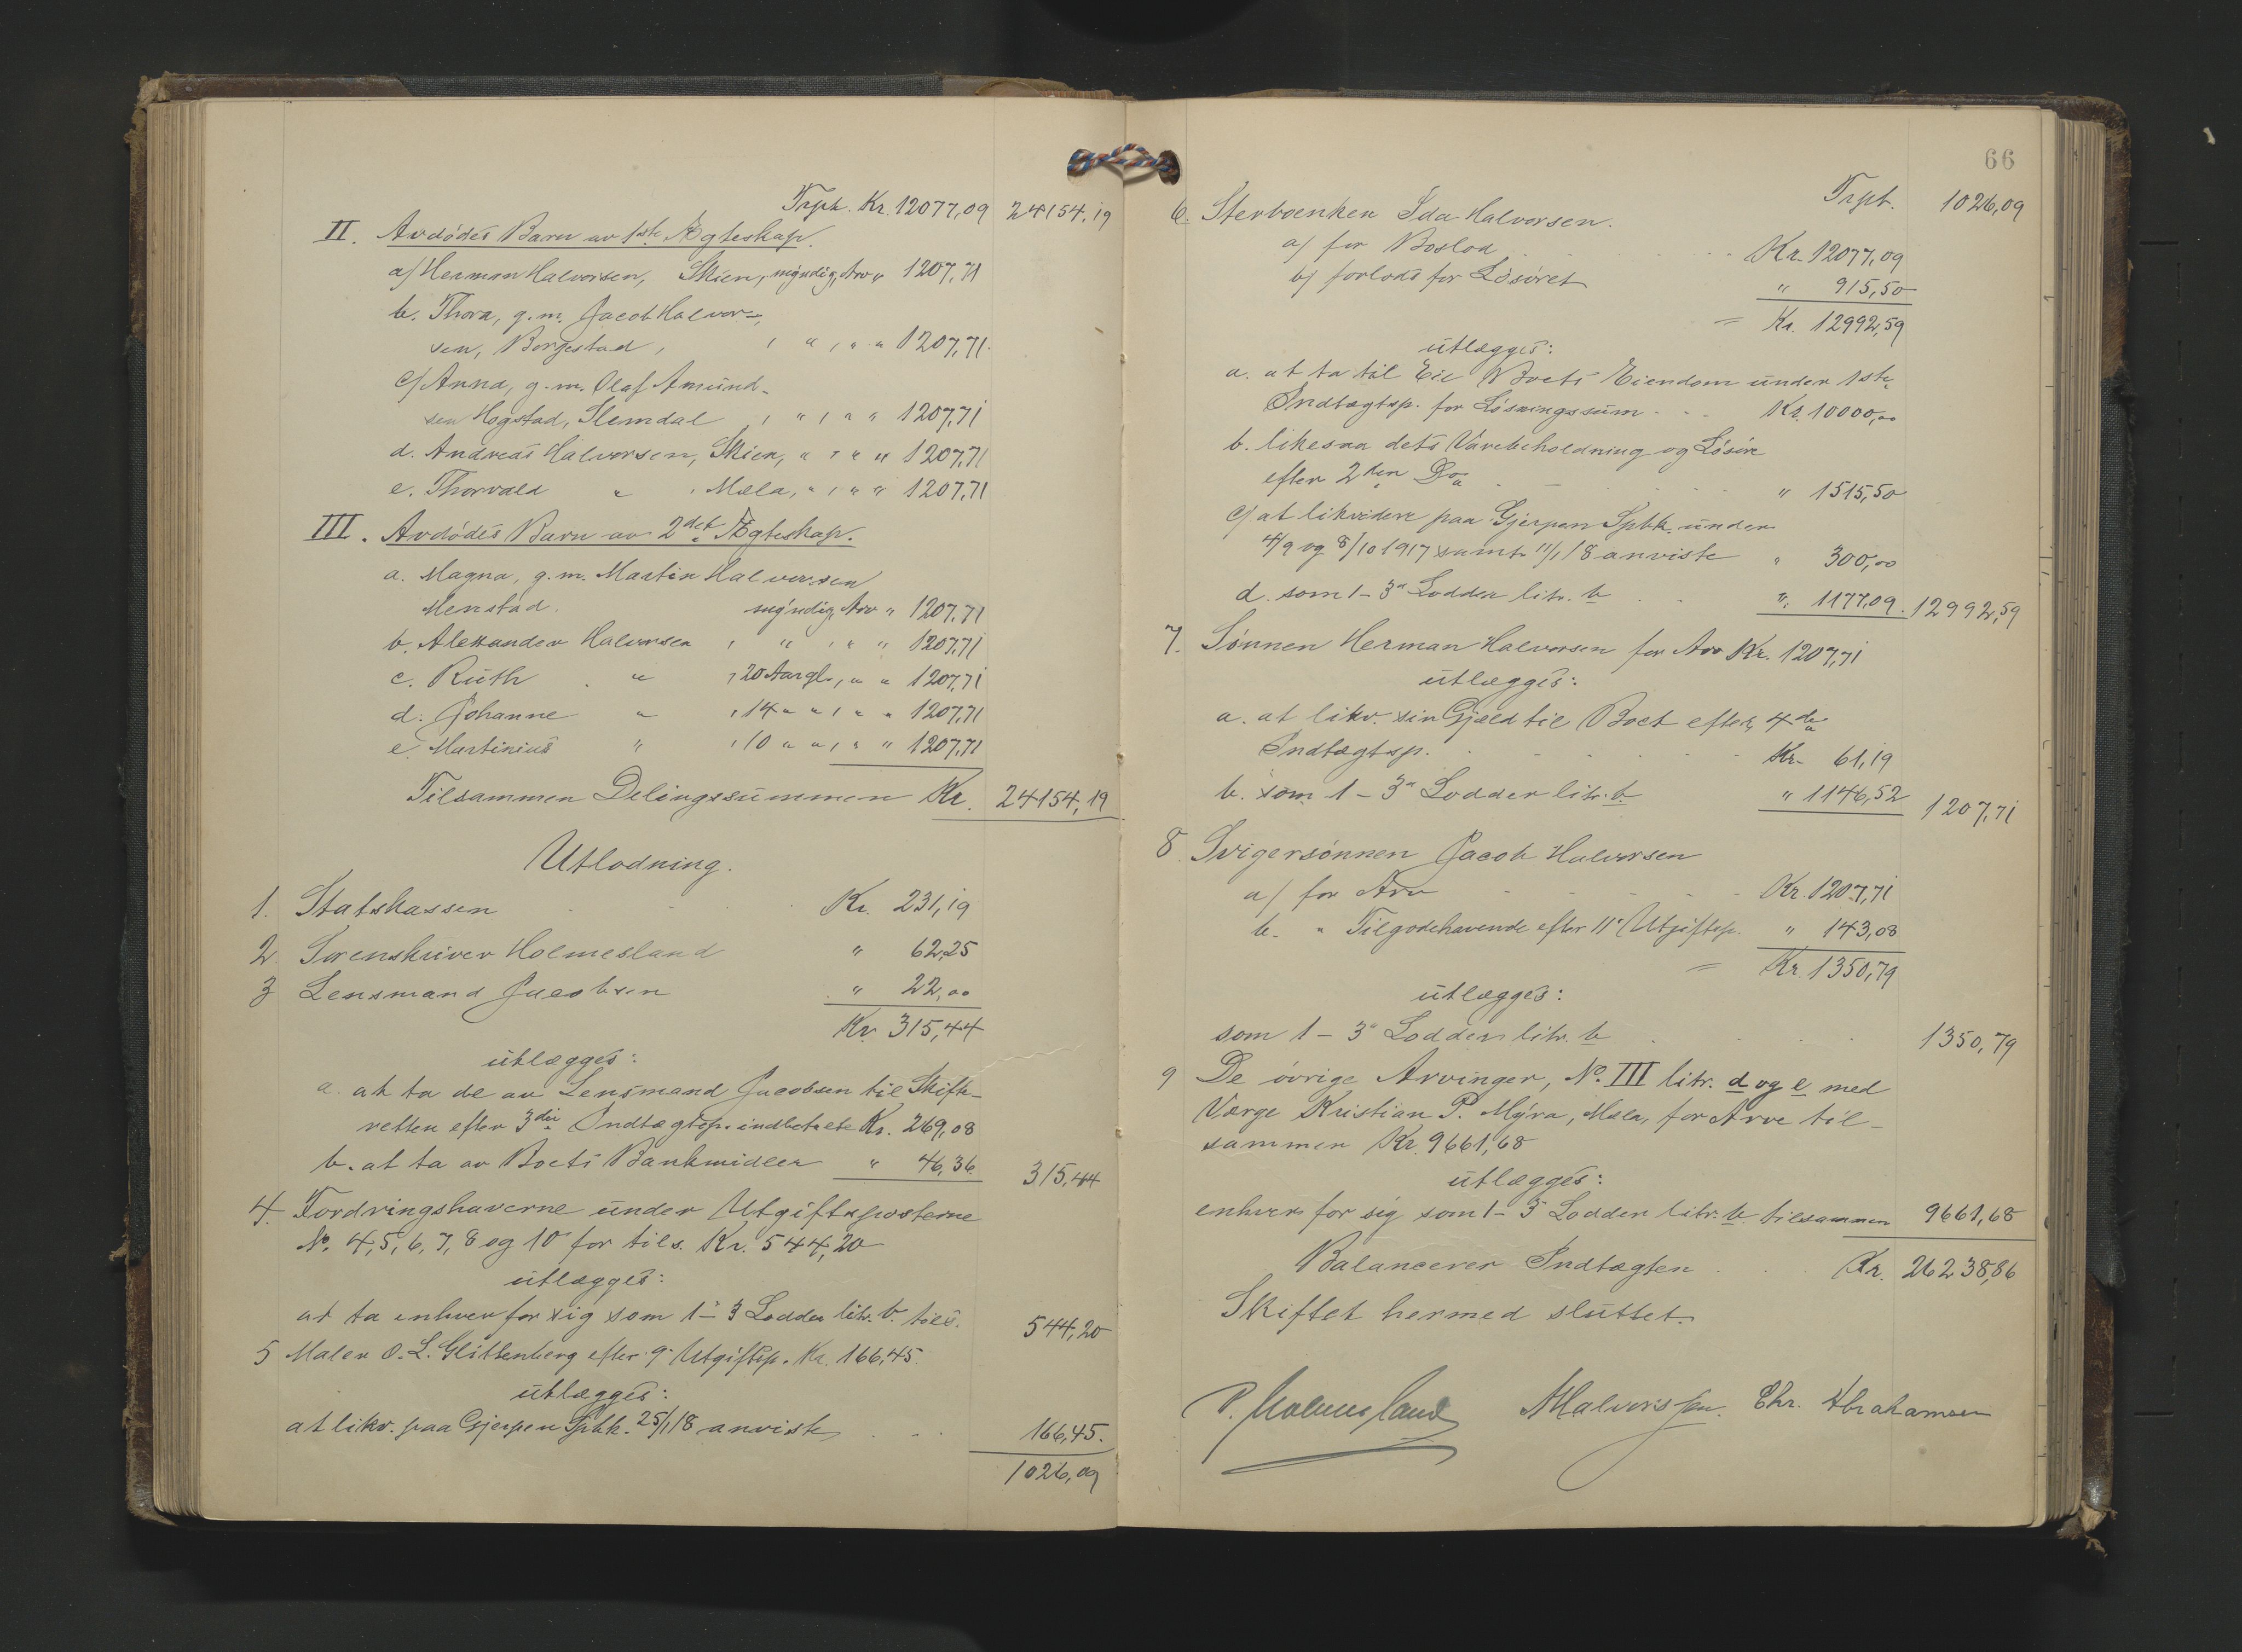 Trpt. Kr. 12077,09 24154,19
II. Avdødes Barn av 1ste Ægteskap.
a/ Herman Halvorsen, Skien, myndig, Arv " 1207,71
b. Thora, g.m. Jacob Halvor-
sen, Borgestad, , " , " " 1207,71
c/ Anna, g.m. Olaf Amund-
sen Hogstad, Slemdal , " , " " 1207,71
d. Andreas Halvorsen, Skien, " , " " 1207,71
e. Thorvald " , Mæla, " , " " 1207,71
III. Avdødes Barn av 2det Ægteskap.
a. Magna, g.m. Martin Halvorsen
Menstad. myndig, Arv " 1207,71
b. Aleksander Halvorsen , " , " " 1207,71
c. Ruth " , 20 Aar gl., " " 1207,71
d. Johanne " , 14 " " , " " 1207,71
e. Martinius " , 10 " " , " " 1207,71
Tilsammen Delingssummen Kr. 24154,19
Utlodning.
1. Statskassen Kr. 231,19
2. Sorenskriver Holmesland " 62,25
3 Lensmand Jacobsen " 22,00
Kr. 315,44
utlægges:
a. at ta de av Lensmand Jacobsen til Skifte-
retten efter 3die Indtægtsp. indbetalte Kr. 269,08
b. at ta av Boets Bankmidler " 46,36 315,44
4. Fordringshaverne under Utgiftsposterne
No. 4, 5, 6, 7, 8 og 10 for tils. Kr. 544,20
utlægges:
at ta enhver for sig som 1-3 Lodder litr. b. tils. 544,20
5 Maler O. L. Glittenberg efter 9. Utgiftsp. Kr. 166,45.
utlægges:
at likv. paa Gjerpen Spbk. 25/1 18 anviste 166,45.
1026,09
66
Trpt. 1026,09
6. Sterboenken Ida Halvorsen.
a/ for Boslod Kr. 12077,09
b/ forlods for Løsøret " 915,50
= Kr. 12992,59
utlægges:
a. at ta til Eie Boets Eiendom under 1ste
Indtægtsp. for Løsningssum Kr. 10000,00
b. likesaa dets Varebeholdning og Løsøre
efter 2den Do " 1515,50
c/ at likvidere paa Gjerpen Spbk. under
4/9 og 8/10 1917 samt 11/1 18 anviste " 300,00
d. som 1-3" Lodder litr. b " 1177,09. 12992,59
7. Sønnen Herman Halvorsen for Arv Kr. 1207,71
utlægges:
a. at likv. sin Gjæld til Boet efter 4de
Indtægtsp. Kr. 61,19
b. som 1-3" Lodder litr. b. " 1146,52 1207,71
8. Svigersønnen Jacob Halvorsen
a/ for Arv Kr. 1207,71
b. " Tilgodehavende efter 11" Utgiftsp. " 143,08
= Kr. 1350,79
utlægges:
som 1-3" Lodder litr. b 1350,79
9 De øvrige Arvinger, No. III litr. d og e med
Værge Kristian P. Myra, Mæla, for Arve til-
sammen Kr. 9661,68
utlægges:
enhver for sig som 1-3 Lodder litr. b. tilsammen 9661,68
Balancerer Indtægten Kr. 26238,86
Skiftet hermed sluttet.
P. Holmesland AHalvorsen. Chr. Abrahamsen